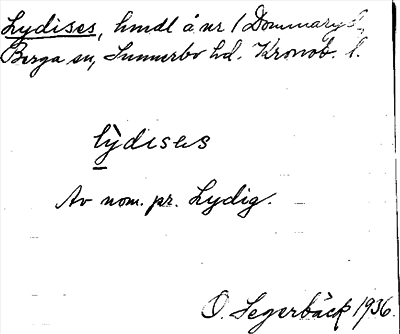 Lydises, hmdl å nr 1 Dommaryd,
Berga sn, Sunnerbo hd. Kronob. l.
lỳdisəs
Av nom. pr. Lydig.
O. Segerbäck 1936.